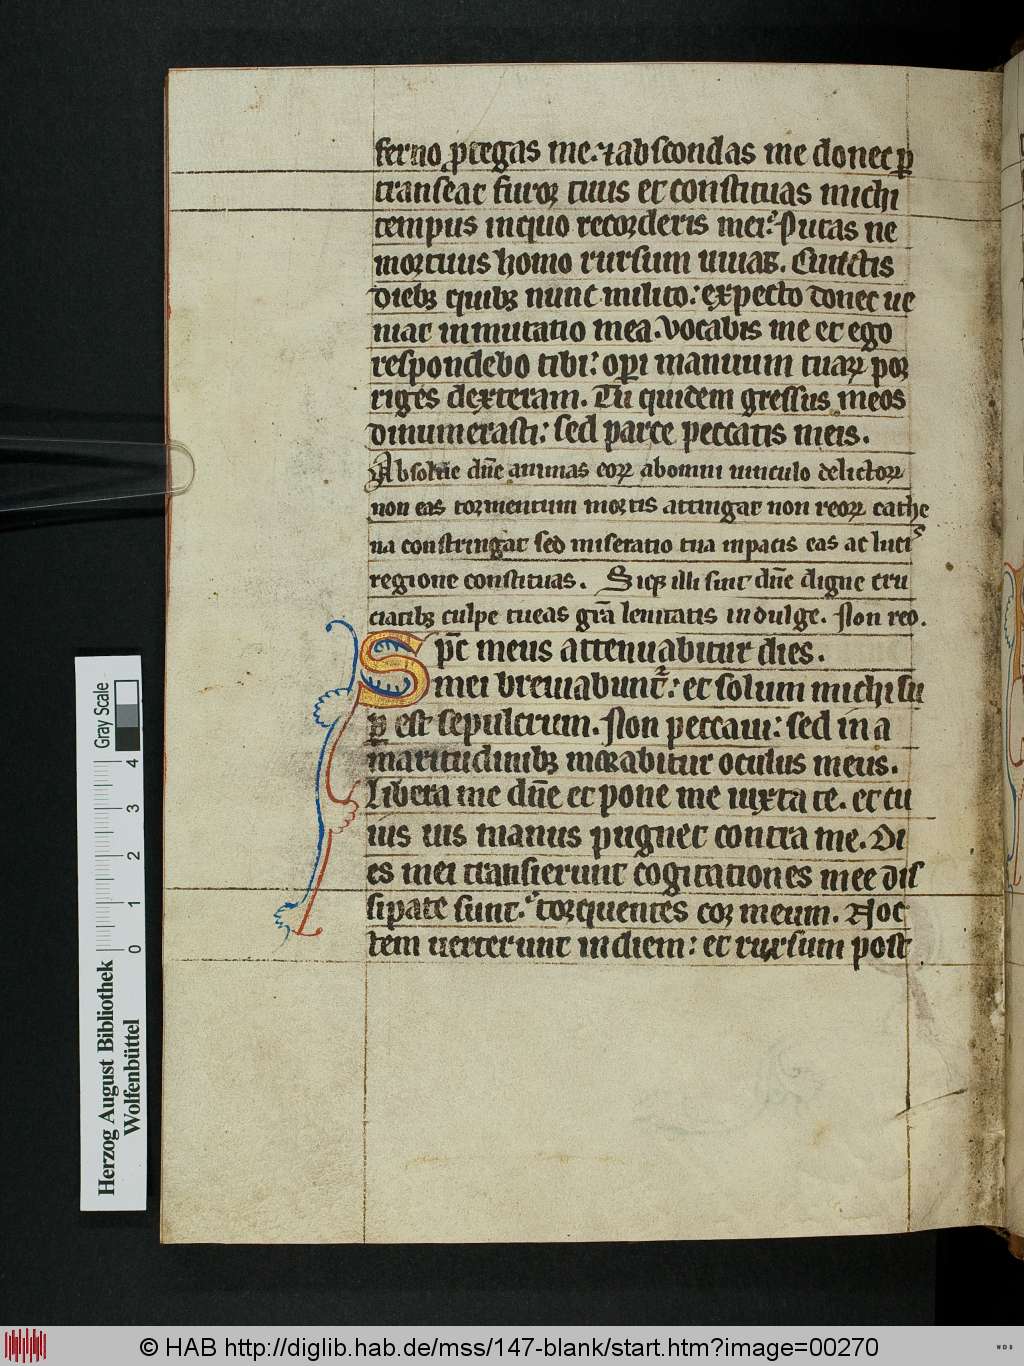 ferno ꝓtegas me. ⁊ abscondas me donec ꝑ
transeat furor tuus et constituas michi
tempus inquo recorderis mei. Putas ne
mortuus homo rursum uiuat. Cunctis
diebꝫ quibꝫ nunc milito: expecto donec ue
niat inmutatio mea. vocabis me et ego
respondebo tibi: oꝑi manuum tuaꝝ por
riges dexteram. Tu quidem gressus meos
dinumerasti: sed parce peccatis meis.
Absolue dn̄e animas eoꝝ ab omni uinculo delictoꝝ
non eas tormentum mortis attingat non reoꝝ cathe
na constringat sed miseratio tua inpacis eas ac lucis
regione constituas. Siqꝫ illi sint dn̄e digne cru
ciatibꝫ culpe tu eas gr̄a lenitatis indulge. Non reo.
Sp̄c meus attenuabitur dies.
mei breuiabunt᷑: et solum michi su
ꝑ est sepulcrum. Non peccaui: sed in a
maritudinibꝫ morabitur oculus meus.
Libera me dn̄e et pone me iuxta te. et cu
ius uis manus pugnet contra me. Di
es mei transierunt cogitationes mee dis
sipate sunt: torquentes cor meum. Noc
tem uerterunt in diem: et rursum post
Gray Scale
4 3 2 1 0
Herzog August Bibliothek
Wolfenbüttel
© HAB http://diglib.hab.de/mss/147-blank/start.htm?image=00270